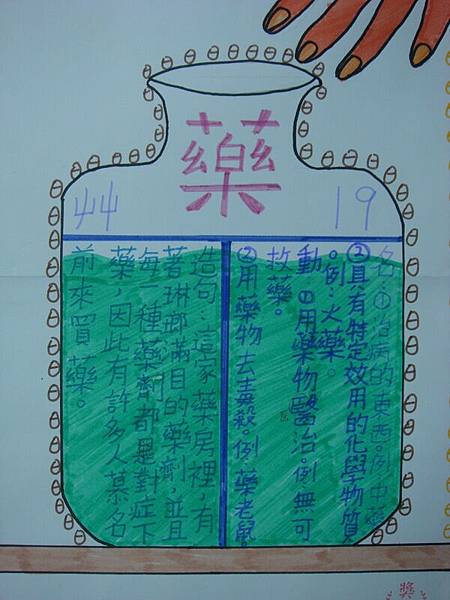 藥
艸
19
名:①治病的東西。例中藥
②具有特定效用的化學物質
。例:火藥。
動①用藥物醫治。例無可
救藥。
②用藥物去毒殺。例藥老鼠
造句:這家藥房裡,有
著琳瑯滿目的藥劑,並且
每一種藥劑都是對症下
藥,因此有許多人慕名
前來買藥。
獎